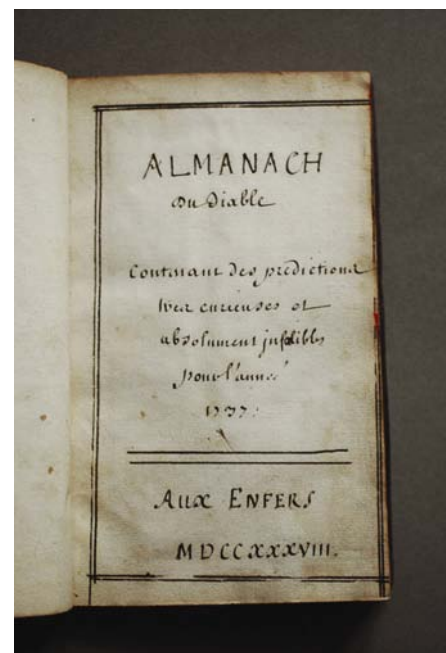 ALMANACH
du Diable
Contenant des predictions
tres curieuses et
absolument infalibles
pour l'année
1737.
AUX ENFERS
MDCCXXXVIII.